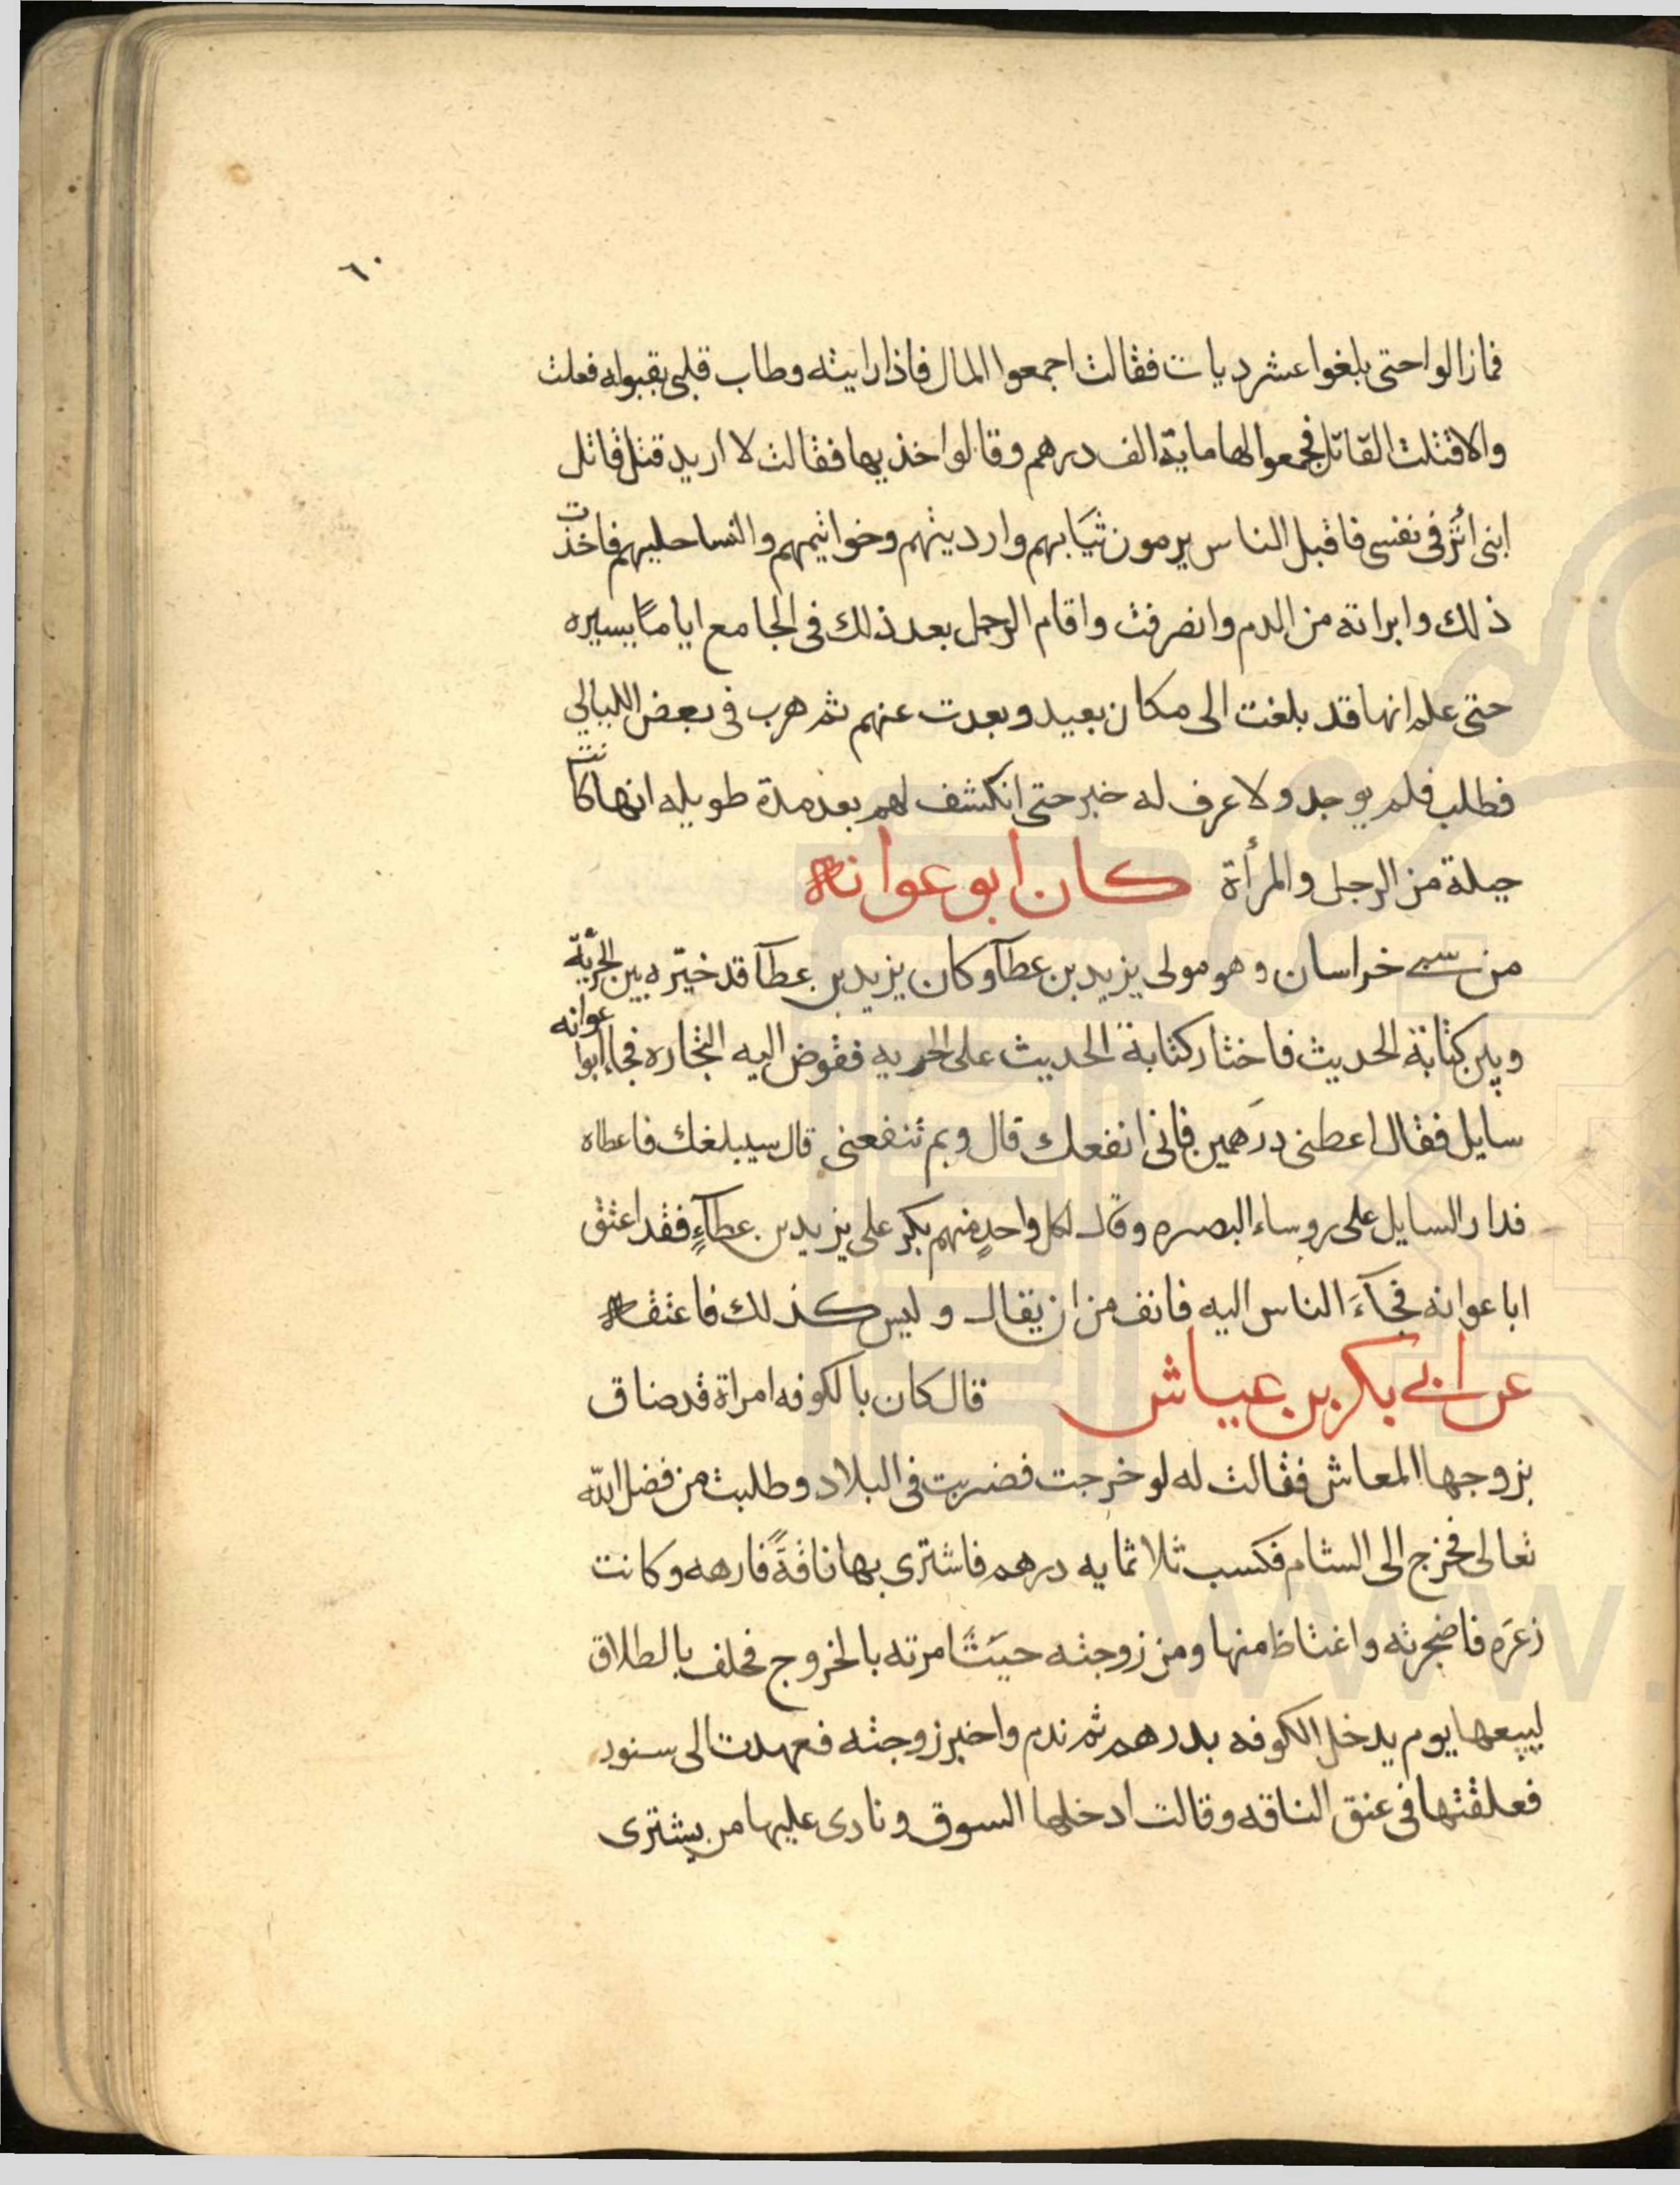 ٦٠
فمازالوا حتى بلغوا عشر ديات فقالت اجمعوا المال فاذا رايته وطاب قلبى بقبوله فعلت
والا قتلت القاتل فجمعوا لها ماية الف درهم وقالوا خذيها فقالت لا اريد قتل قاتل
ابنى أثر فى نفسى فاقبل الناس يرمون ثيابهم وارديتهم وخواتيمهم والنسا حليهم فاخذت
ذلك وابراته من الدم وانصرفت واقام الرجل بعد ذلك فى الجامع اياماً يسيره
حتى علم انها قد بلغت الى مكان بعيد وبعدت عنهم ثم هرب فى بعض الليالي
فطلب فلم يوجد ولا عرف له خبر حتى انكشف لهم بعد مدة طويله انها كانت
حيلة من الرجل والمرأة كان ابو عوانه
من سبى خراسان وهو مولى يزيد بن عطآ وكان يزيد بن عطآ قد خيّره بين الحرّية
وبين كتابة الحديث فاختار كتابة الحديث على الحريه ففوض اليه التجاره فجاء ابوا عوانه
سايل فقال اعطنى درهمين فانى انفعك قال وبم تنفعنى قال سيبلغك فاعطاه
فدار السايل على روساء البصره وقال لكل واحدٍ منهم بكر على يزيد بن عطآءٍ فقد اعتق
ابا عوانه فجآءَ الناس اليه فانف من ان يقال وليس كذلك فاعتقه
عن ابى بكر بن عياش قال كان بالكوفه امراة قد ضاق
بزوجها المعاش فقالت له لو خرجت فضربت فى البلاد وطلبت من فضل الله
تعالى فخرج الى الشام فكسب ثلاثمايه درهم فاشترى بها ناقةً فارهه وكانت
زعره فاضجرته واغتاظ منها ومن زوجته حيث امرته بالخروج فحلف بالطلاق
ليبيعها يوم يدخل الكوفه بدرهم ثم ندم واخبر زوجته فعهدت الى سنور
فعلقتها فى عنق الناقه وقالت ادخلها السوق ونادى عليها من يشترى